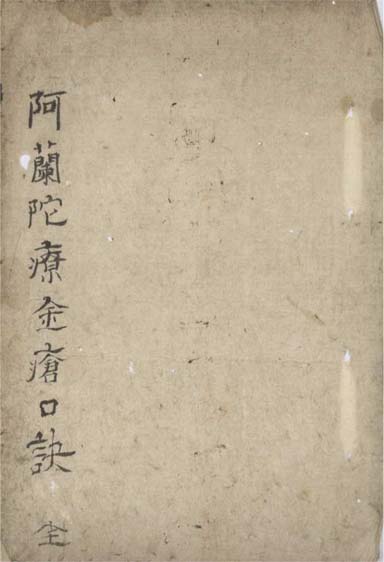 阿蘭陀療金瘡口訣 全